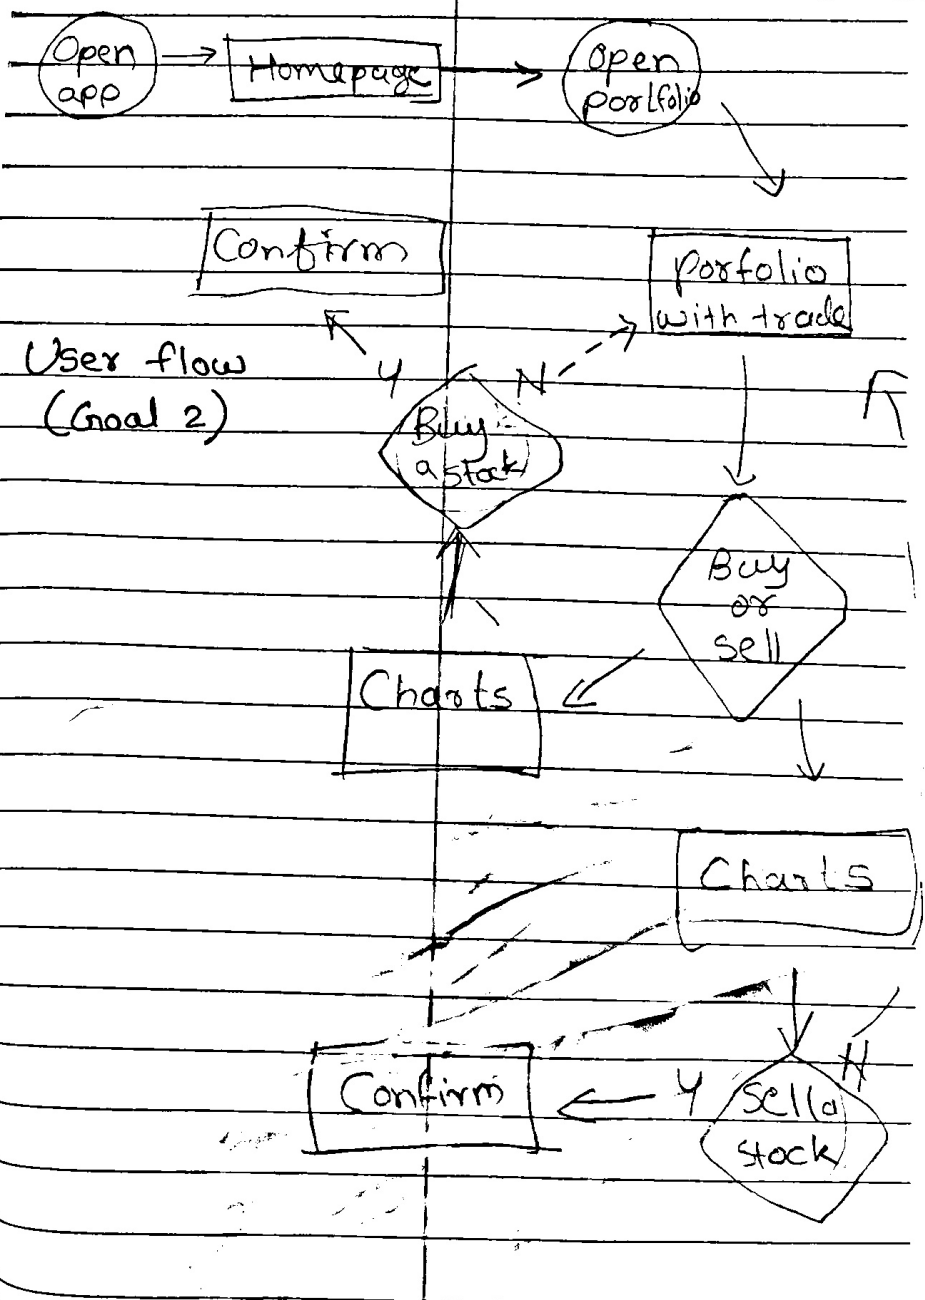 Open
app
Homepage
open
portfolio
Confirm
Porfolio
with trade
User flow
(Goal 2)
Y
N
Buy
a stock
Buy
or
sell
Charts
Charts
N
Confirm
Y
Sell a
stock